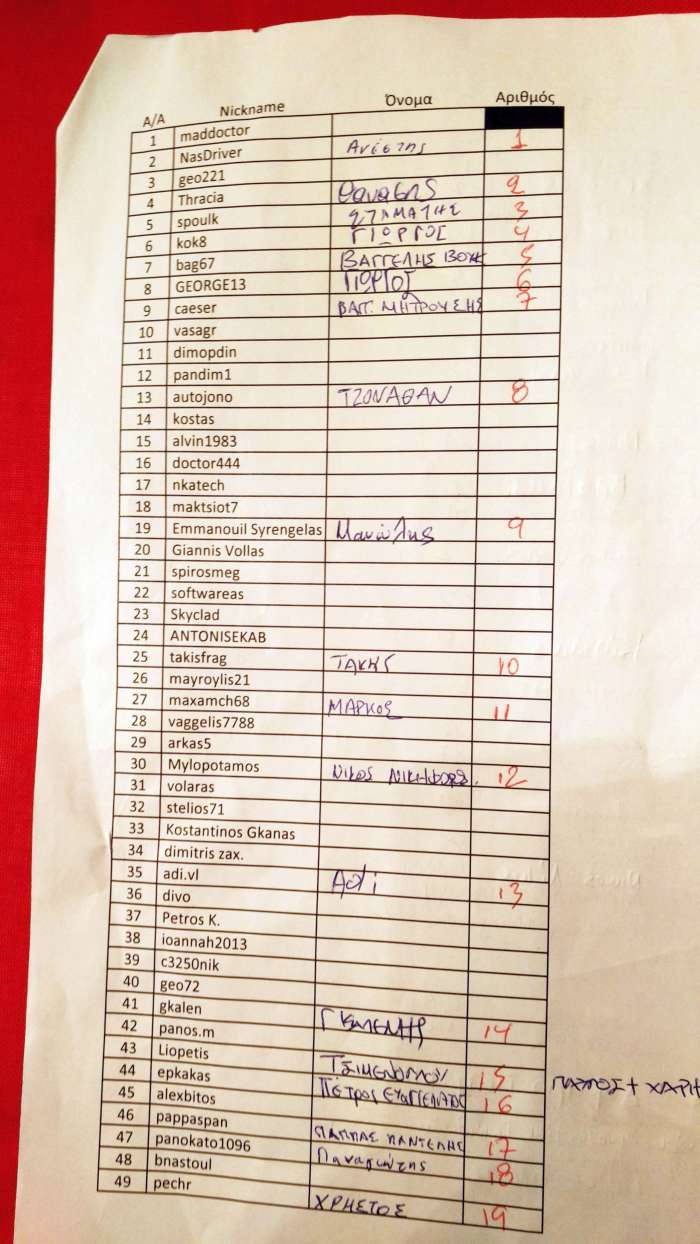 A/A Nickname Όνομα Αριθμός
1 maddoctor
2 NasDriver Ανέστης 1
3 geo221
4 Thracia Θανάσης 2
5 spoulk ΣΤΑΜΑΤΗΣ 3
6 kok8 ΓΙΩΡΓΟΣ 4
7 bag67 ΒΑΓΓΕΛΗΣ 5
8 GEORGE13 ΓΙΩΡΓΟΣ 6
9 caeser ΒΑΓΓ. ΜΗΤΡΟΥΣΗΣ 7
10 vasagr
11 dimopdin
12 pandim1
13 autojono ΤΖΟΝΑΘΑΝ 8
14 kostas
15 alvin1983
16 doctor444
17 nkatech
18 maktsiot7
19 Emmanouil Syrengelas Μανώλης 9
20 Giannis Vollas
21 spirosmeg
22 softwareas
23 Skyclad
24 ANTONISEKAB
25 takisfrag ΤΑΚΗΣ 10
26 mayroylis21
27 maxamch68 ΜΑΡΚΟΣ 11
28 vaggelis7788
29 arkas5
30 Mylopotamos ΝΙΚΟΣ 12
31 volaras
32 stelios71
33 Kostantinos Gkanas
34 dimitris zax.
35 adi.vl Adi 13
36 divo
37 Petros K.
38 ioannah2013
39 c3250nik
40 geo72
41 gkalen 14
42 panos.m
43 Liopetis 15
44 epkakas ΠΕΤΡΟΣ 16
45 alexbitos
46 pappaspan ΠΑΠΠΑΣ ΠΑΝΤΕΛΗΣ 17
47 panokato1096 Παναγιώτης 18
48 bnastoul
49 pechr ΧΡΗΣΤΟΣ 19